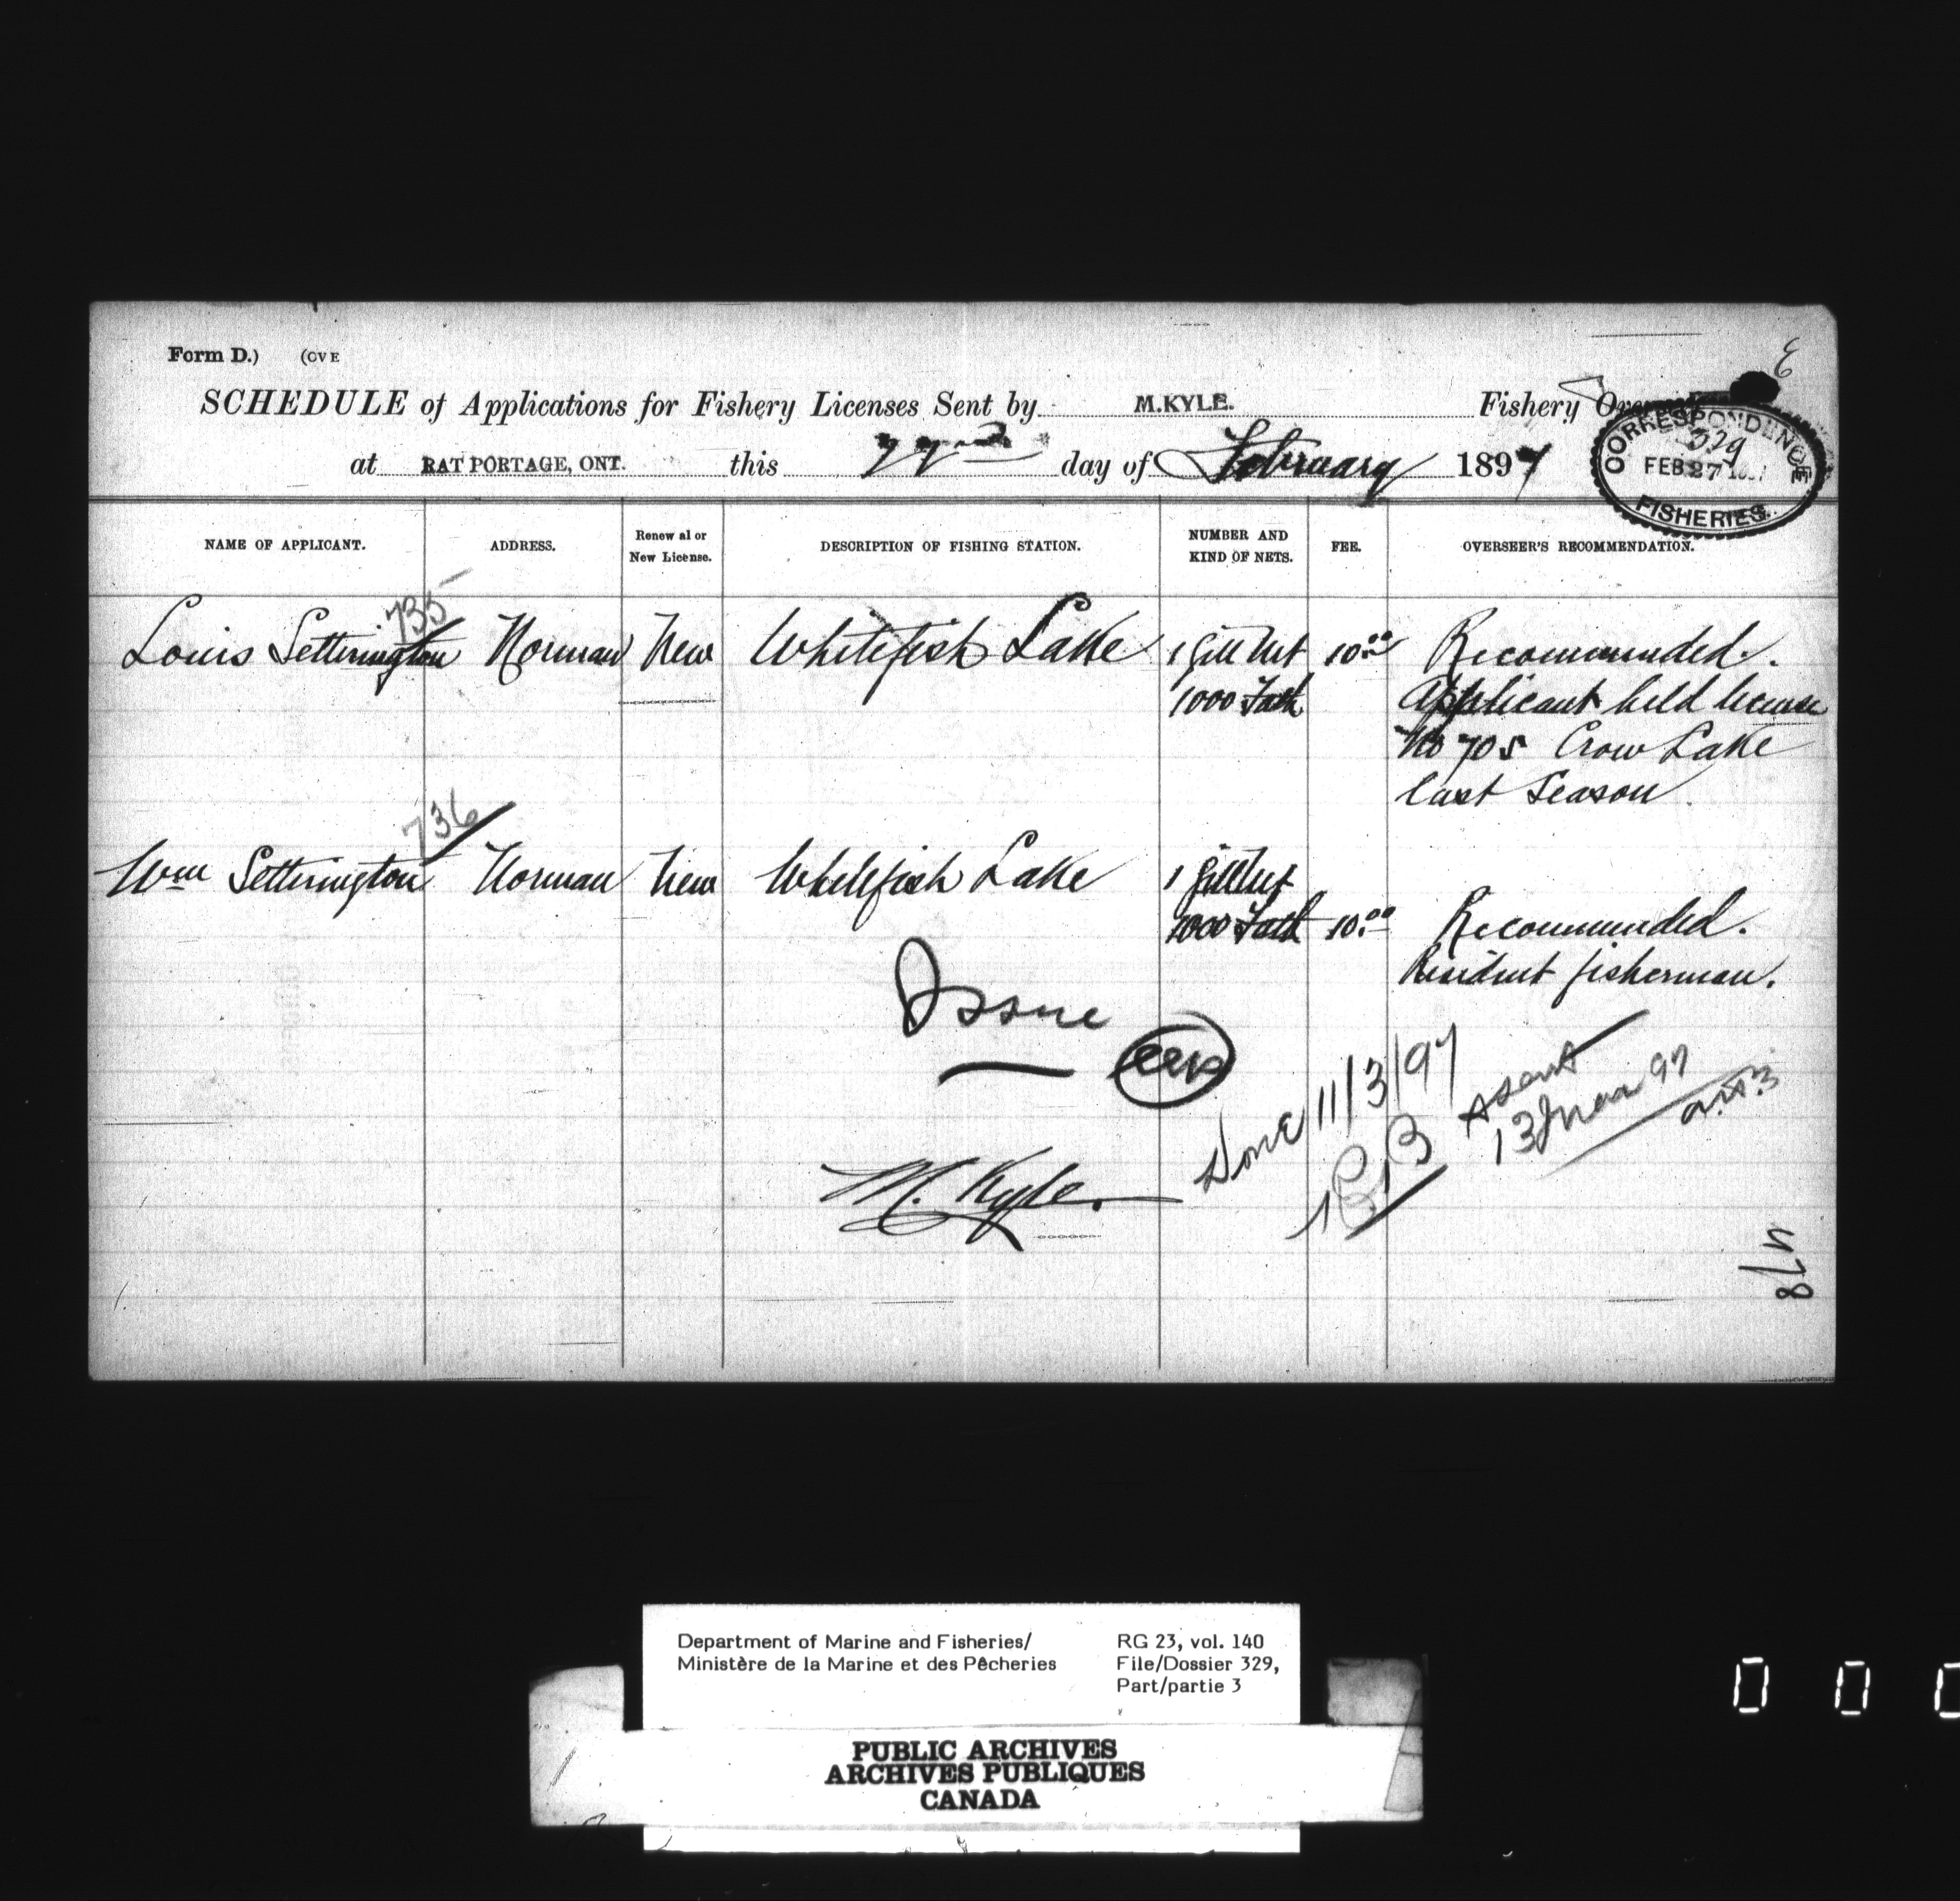 Form D.) (OVE
SCHEDULE of Applications for Fishery Licenses Sent by M.KYLE. Fishery
at RAT PORTAGE, ONT. this 22nd day of February 1897
CORRESPONDENCE
329
FEB 27
FISHERIES.
NAME OF APPLICANT. ADDRESS. Renewal or New License. DESCRIPTION OF FISHING STATION. NUMBER AND KIND OF NETS. FEE. OVERSEER'S RECOMMENDATION.
735
Louis Setterington Norman New Whitefish Lake 1 Gill Net 10.00 Recommended.
1000 Fath Applicant held license
No 705 Crow Lake
last Season
736
Wm Setterington Norman New Whitefish Lake 1 Gill Net
1000 Fath 10.00 Recommended.
Resident fisherman.
Issue
Done 11/3/97
13 Mar 97
M. Kyle.
478
Department of Marine and Fisheries/
Ministère de la Marine et des Pêcheries
RG 23, vol. 140
File/Dossier 329,
Part/partie 3
PUBLIC ARCHIVES
ARCHIVES PUBLIQUES
CANADA
0 0 0